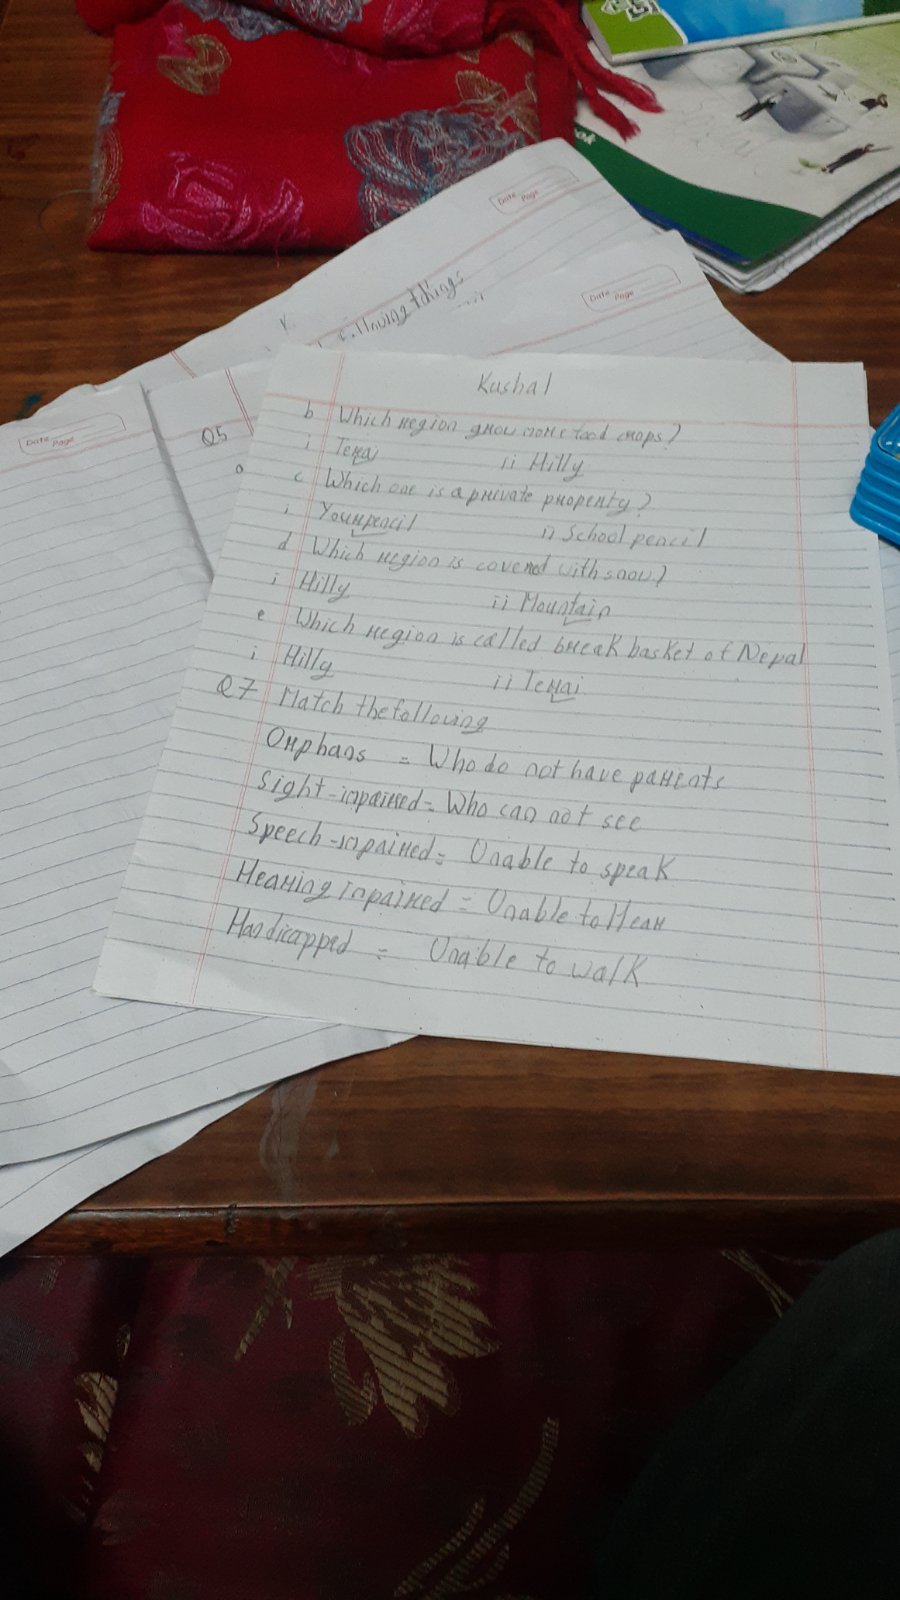 Date
Page
c. Having tdkings
Date
Page
Date
Page
Q5
a
Kushal
b Which region grow more food crops?
i Tera ii Hilly
c Which one is a private property?
i Your pencil ii School pencil
d Which region is covered with snow?
i Hilly ii Mountain
e Which region is called break basket of Nepal
i Hilly ii Terai
Q7 Match the following
Orphans = Who do not have parents
Sight-impaired = Who can not see
Speech-impaired = Unable to speak
Hearing impaired = Unable to Hear
Handicapped = Unable to walk